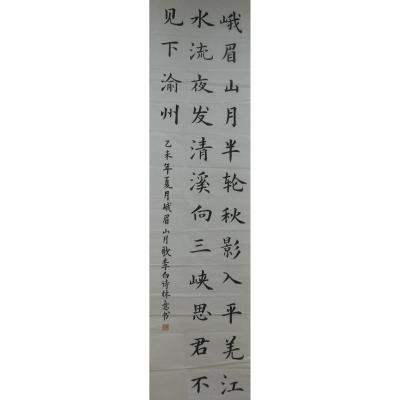 峨眉山月半轮秋影入平羌江
水流夜发清溪向三峡思君不
见下渝州
乙未年夏月峨眉山月歌李白诗林志书